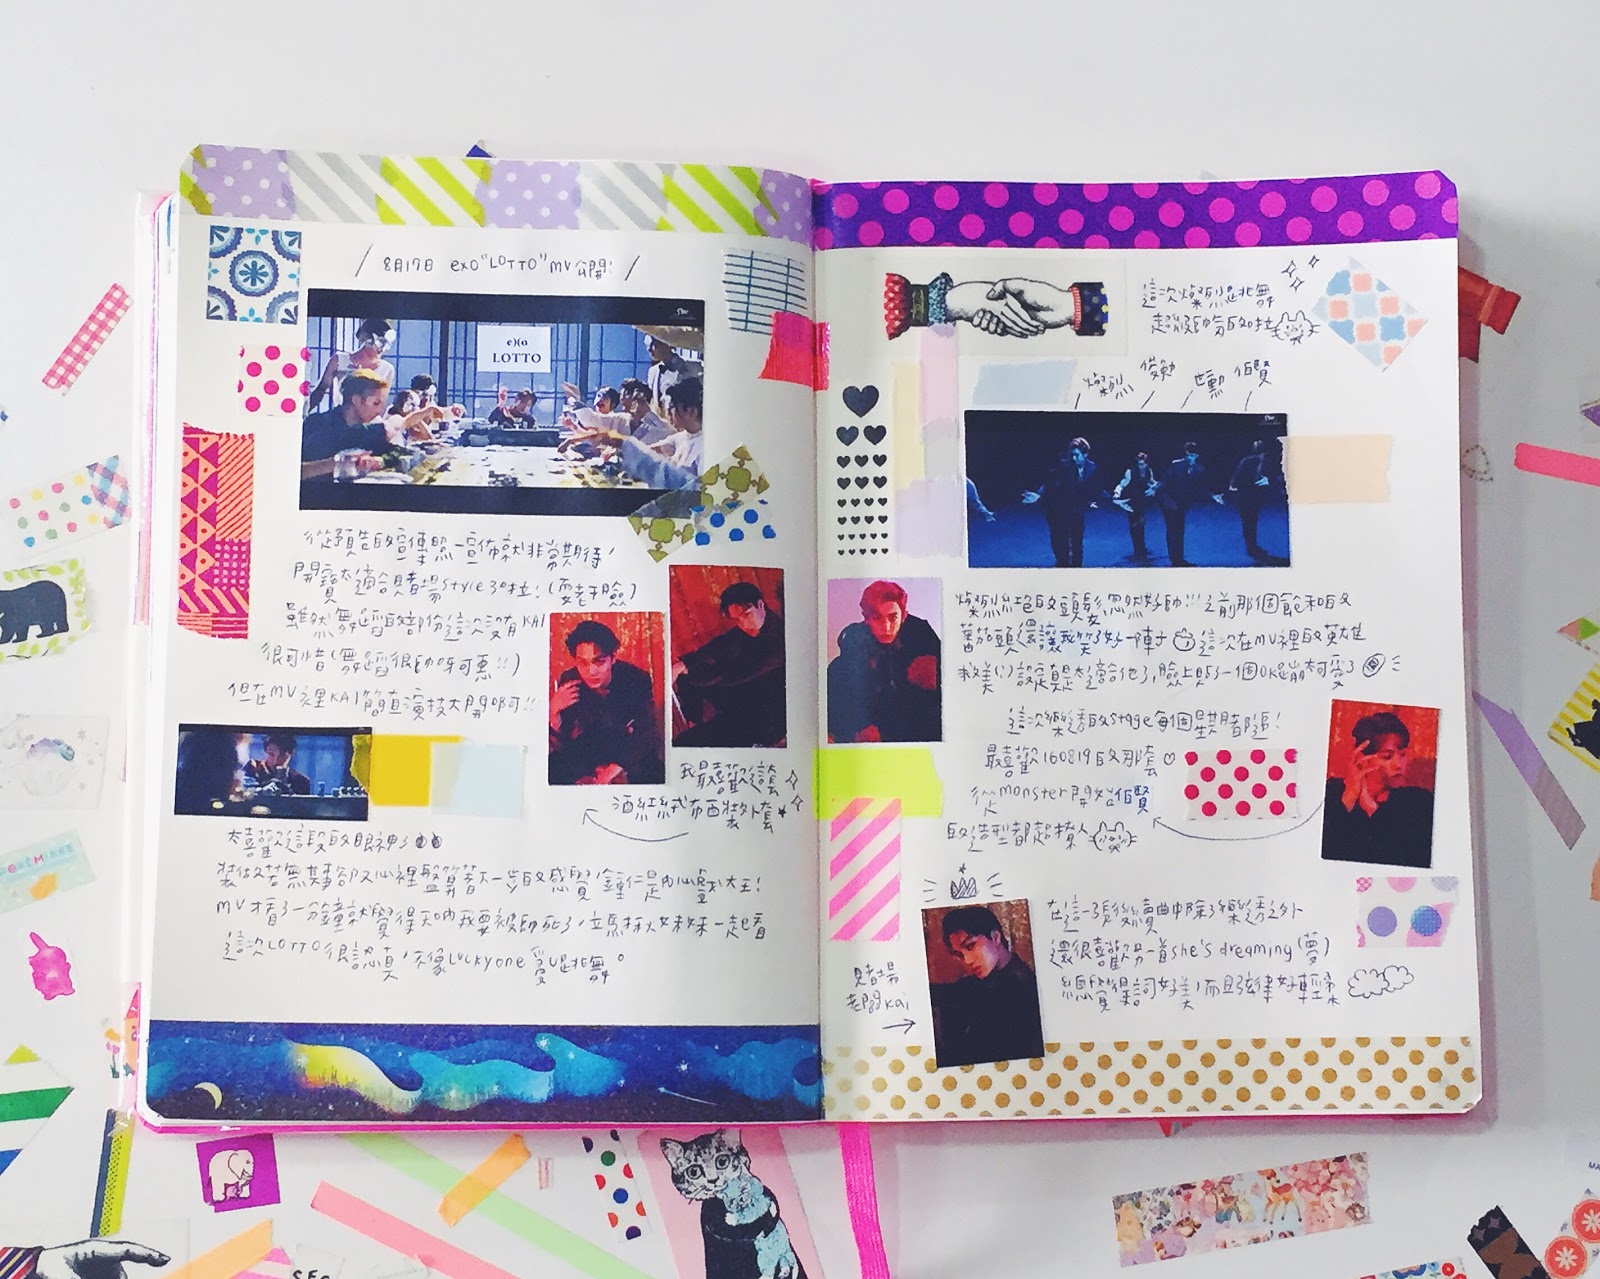 8月17日 EXO "LOTTO" MV公開!
exo
LOTTO
從預告的宣傳照一宣佈就非常期待,
開寶太適合賭場style了啦!(耍老千臉)
雖然舞蹈的部份這次沒有KAI
很可惜(舞蹈很帥呀可惡!!)
但在MV裡KAI簡直演技大開啊!!
我最喜歡這套
酒紅絨布西裝外套
太喜歡這段的眼神了
裝做若無其事卻又心裡盤算著不一的感覺,鐘仁是內心戲大王!
MV才看了一分鐘就覺得天吶我要被帥死了,立馬揪妹妹一起看
這次LOTTO很認真,不像Lucky one 愛NG舞。
這次燦烈
超級帥的啦
燦烈
俊勉
世勳
伯賢
燦烈紅色的頭髮忽然好帥!!!之前那個飽和的
蕃茄頭還讓我笑了好一陣子 這次在MV裡的英雄
救美(?)設定真是太適合他了,臉上貼了一個OK蹦可愛了
這次樂透的stage每個星期都追!
最喜歡160819的那套♡
從monster開始伯賢
的造型都超撩人
在這一張後續曲中除了樂透之外
還很喜歡另一首she's dreaming (夢)
總覺得詞好美,而且旋律好輕柔
賭場
老闆Kai